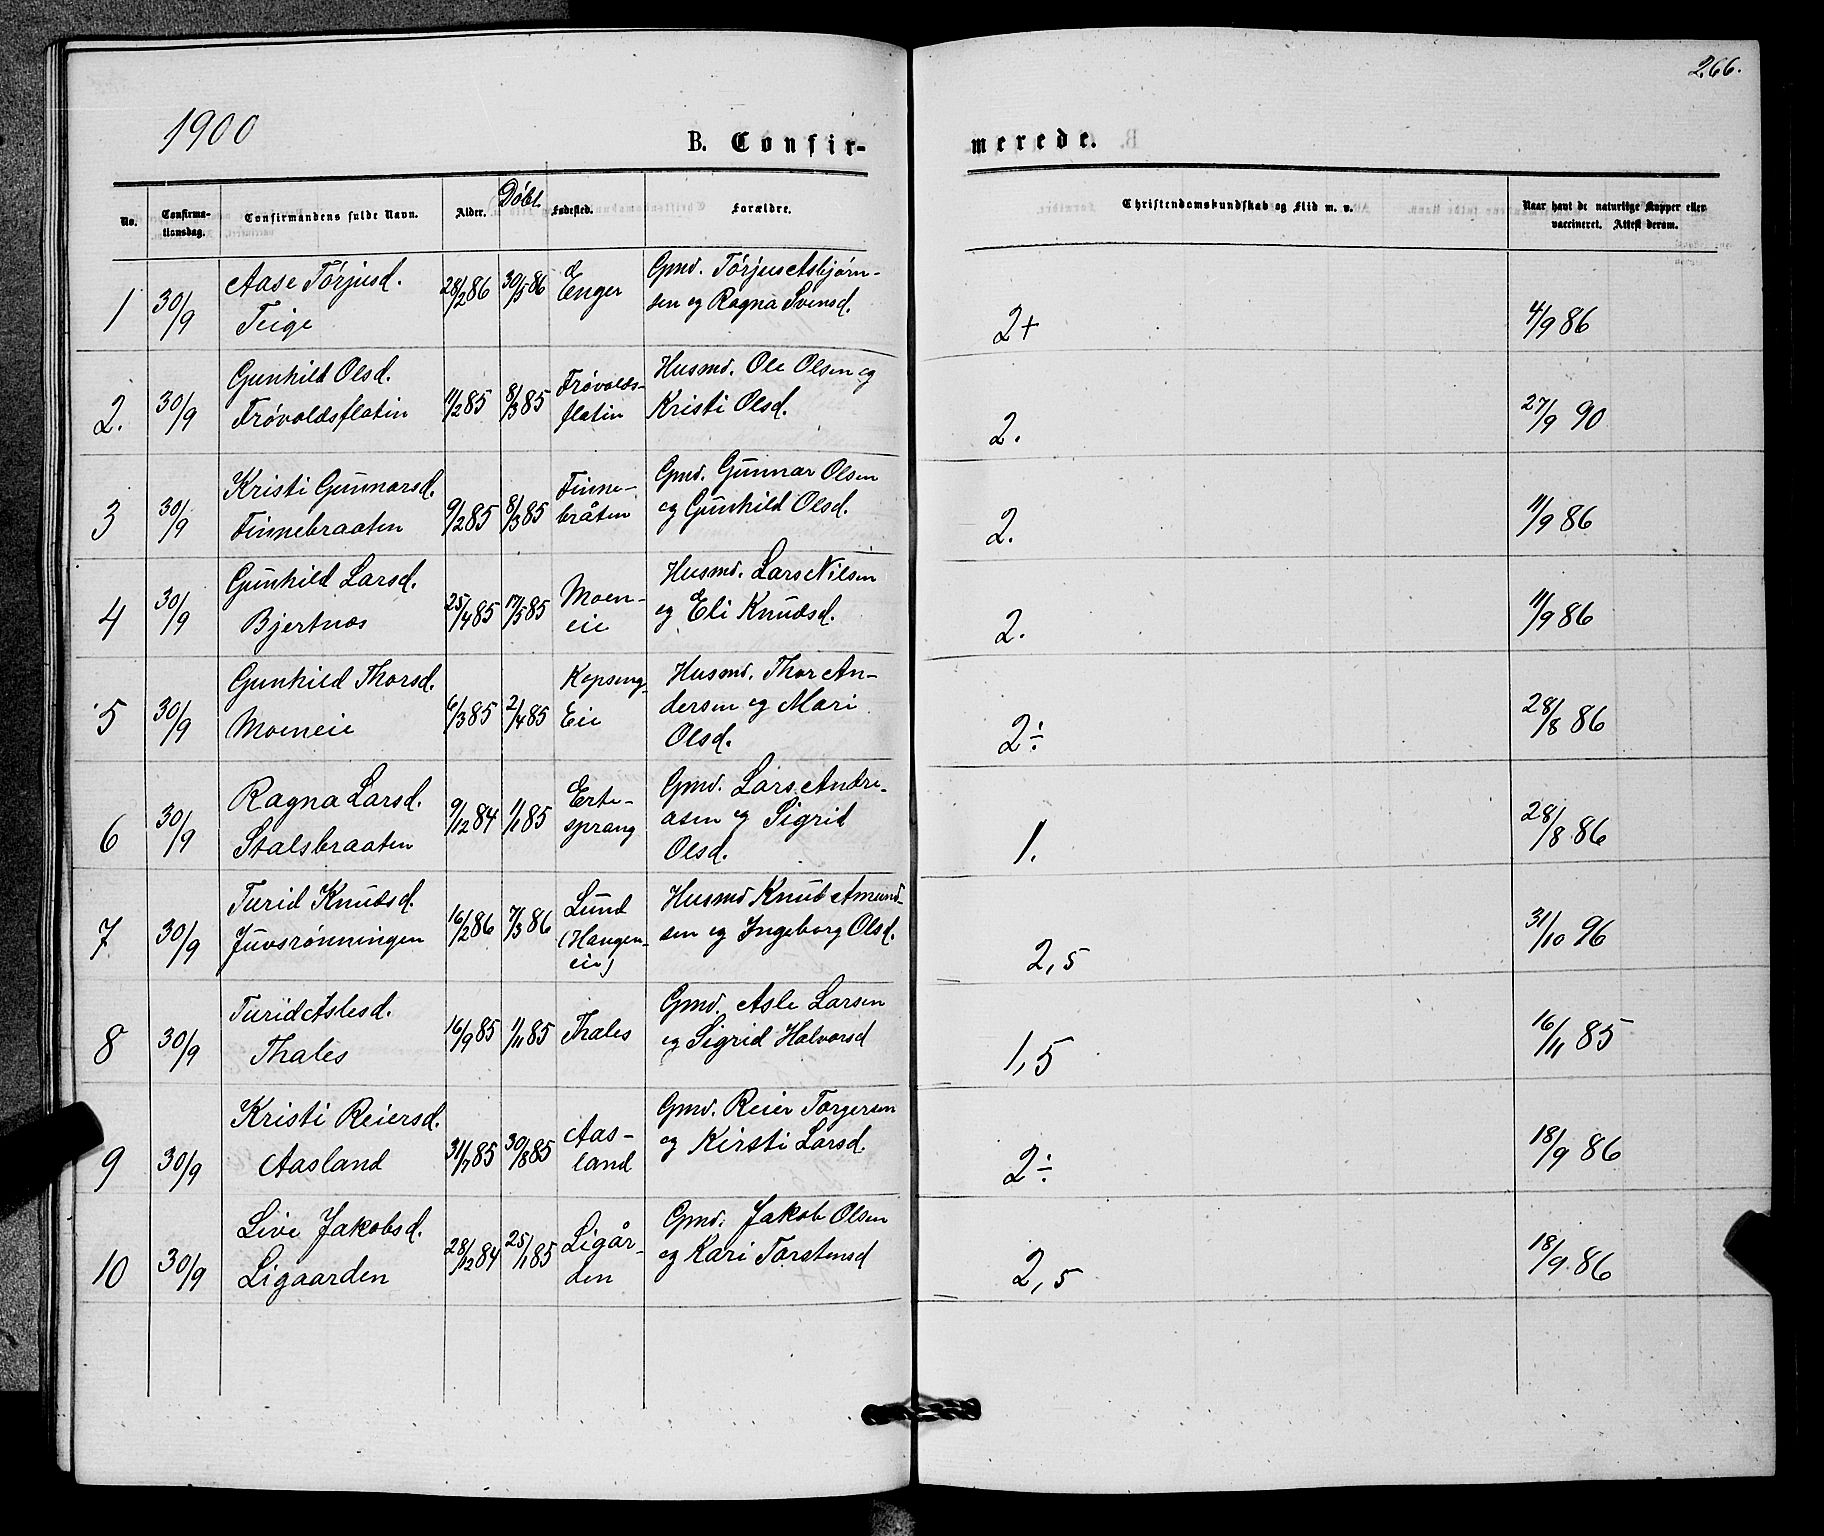 266.
1900
B. Confir-
merede.
No.
Confirma-
tionsdag.
Confirmandens fulde Navn.
Alder.
Døbt.
Fødested.
Forældre.
Christendomskundskab og Flid m. v.
Naar havt de naturlige Kopper eller
vaccineret. Attest derom.
1 30/9 Aase Torjusd. 28/2 86 30/5 86 Enger Gmd. Torjus Asbjørn-
Teige sen og Ragna Svensd. 2+ 4/9 86
2. 30/9 Gunhild Olsd. 11/2 85 8/3 85 Frøvolds- Husmd. Ole Olsen og
Frøvoldsflatin flatin Kristi Olsd. 2. 27/9 90
3 30/9 Kristi Gunnarsd. 9/2 85 8/3 85 Finne- Gmd. Gunnar Olsen
Finnebraaten bråten og Gunhild Olsd. 2. 11/9 86
4 30/9 Gunhild Larsd. 25/4 85 17/5 85 Moen- Husmd. Lars Nilsen
Bjertnæs eie og Eli Knudsd. 2. 11/9 86
5 30/9 Gunhild Thorsd. 6/3 85 2/4 85 Kopseng- Husmd. Thor An-
Moeneie Eie dersen og Mari
Olsd. 2÷ 28/8 86
6 30/9 Ragna Larsd. 9/12 84 1/1 85 Erte- Gmd. Lars Andre-
Stalsbraaten sprang asen og Sigrid
Olsd. 1. 28/8 86
7 30/9 Turid Knudsd. 16/2 86 7/3 86 Lund Husmd Knut Amund-
Juvsrønningen (Haugen- sen og Ingeborg Olsd.
eie) 2,5 31/10 96
8 30/9 Turid Aslesd. 16/9 85 1/11 85 Thales Gmd. Asle Larsen
Thales og Sigrid Halvorsd 1,5 16/11 85
9 30/9 Kristi Reiersd. 31/7 85 30/8 85 Aas- Gmd. Reier Torgersen
Aasland land og Kirsti Larsd. 2÷ 18/9 86
10 30/9 Live Jakobsd. 28/12 84 25/1 85 Ligår- Gmd. Jakob Olsen
Ligaarden den og Kari Torstensd 2,5 18/9 86